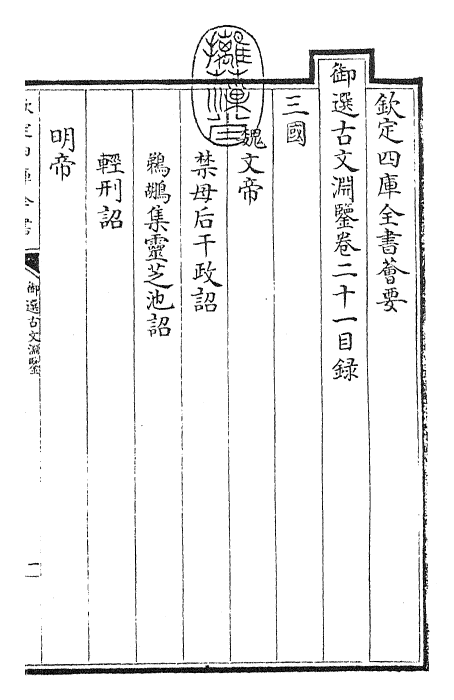 欽定四庫全書薈要
御選古文淵鑒卷二十一目録
三國
魏文帝
禁母后干政詔
鵜鶘集靈芝池詔
輕刑詔
明帝
欽定四庫全書
御選古文淵鑒
一